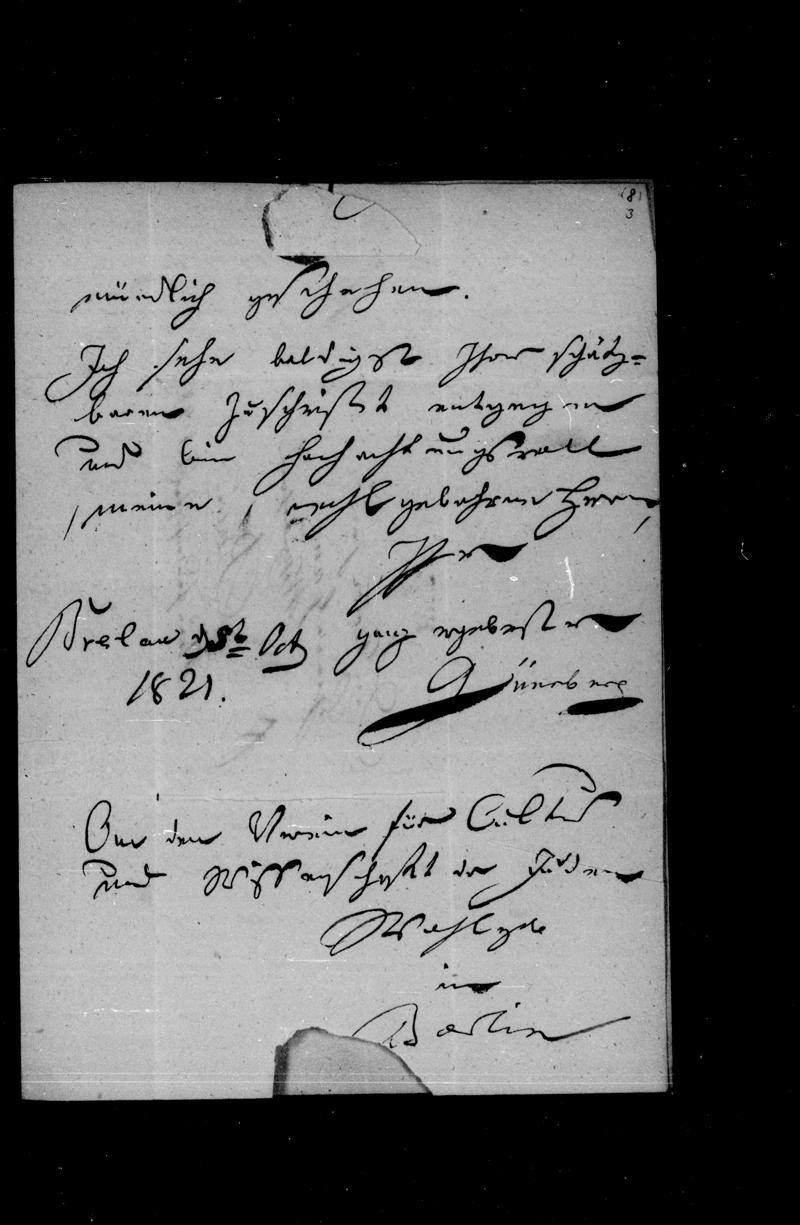 (8)
3
mündlich geschehen.
Ich sehe baldigst Ihrer schätz=
baren Zuschrift entgegen
und bin hochachtungsvoll
meine wohlgebohrne Herrn,
Ihr
Breslau d Oct ganz ergebenster
1821. Günsburg
An den Verein für Cultur
und Wissenschaft der Juden
Wohlgeb
in
Berlin